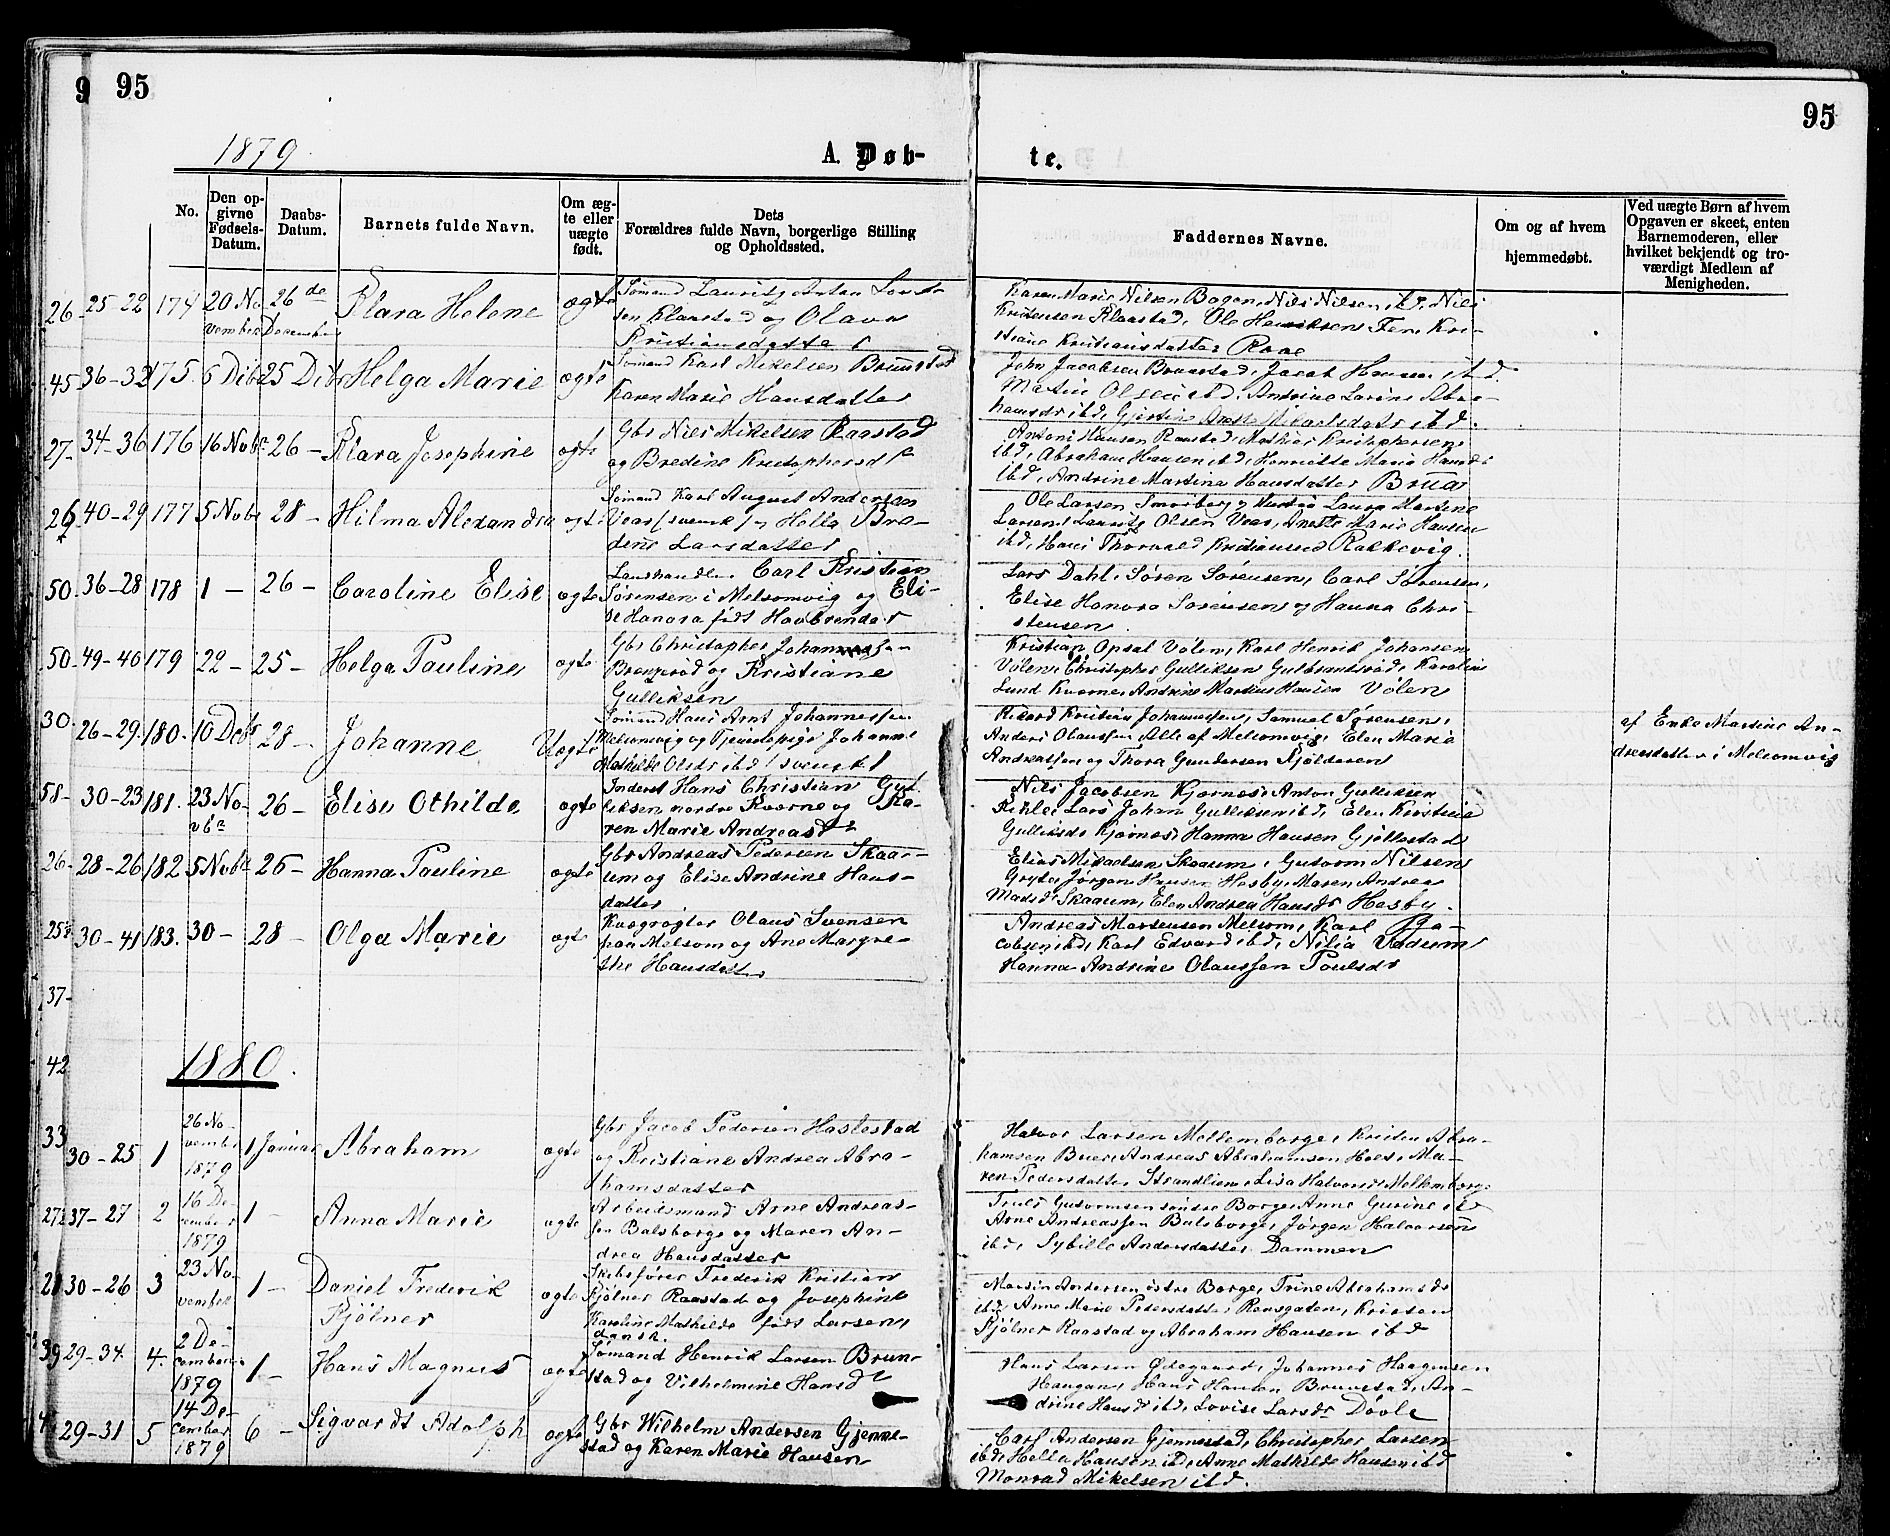 95
95
1879.
A. Døb-
te.
No.
Den op-
givne
Fødsels-
Datum.
Daabs-
Datum.
Barnets fulde Navn.
Om æg-
te eller
uægte
født.
Dets
Forældres fulde Navn, borgerlige Stilling
og Opholdssted.
Faddernes Navne.
Om og af hvem
hjemmedøbt.
Ved uægte Børn af hvem
Opgaven er skeet, enten
Barnemoderen, eller
hvilket bekjendt og tro-
værdigt Medlem af
Menigheden.
25-22 174 20 No-
vember 26de
December Klara Helene ægte
Sømand Lauritz Anton
Klaastad og Olava
Kristiansdatter
Karen Marie Nilsen Bogen, Nils Nilsen, ibd, Nils
Kristensen Klaastad, Ole Henriksen Fen, Kri-
stiane Kristiansdatter
36-33 175. 6 Dcbr 25 Dcbr Helga Marie ægte
Sømand Karl Mikelsen Brunstad
Karen Marie Hansdatter
John Jacobsen Brunstad, Jacob Hansen ibd.
Martin Olsen ibd, Andrine Larine Abra-
hamsdr ibd, Gjertine
34-36 176 16 Nobr 26 - Klara Josephine ægte
Gbr Nils Mikelsen Raastad
og Bredine Kristophersdr
Antoni Hansen Raastad, Mathias Kristophersen
ibd, Abraham Hansen ibd, Henriette Maria Hansdr
ibd, Andrine Martina Hansdatter Brua
40-29 177 5 Nobr 28 - Hilma Alexandra ægte
Sømand Karl August Andersen
Veas (svensk) og Hella Bre-
dine Larsdatter
Ole Larsen Smørberg og Hustru Laura Martine
Larsen, Lauritz Olsen Veas, Anette Marie Hansen
ibd, Hans Thorvald Kristiansen Rakkevig.
36-28 178 1 - 26 - Caroline Elise ægte
Landhandler Carl Kristian
Sørensen i Melsomvig og Eli-
se Hanora født Havbrender
Lars Dahl, Søren Sørensen, Carl Sørensen,
Elise Honora Sørensen og Hanna Chri-
stensen.
49-40 179 22 - 25 - Helga Pauline ægte
Gbr Christopher Johannessen
og Kristiane
Gulliksen
Kristian Opsal Vølen, Karl Henrik Johansen
Vølen, Christopher Gulliksen Gulbrandsrød, Karoline
Lund Kverne, Andrine Martine Hansen Vølen
26-29. 180. 10 Dcbr 28 - Johanne Uægte
Sømand Hans Arnt Johannessen
Melsomvig og Tjenestepige Johanne
Mathilde Olsdr ibd (svensk)
Rikard Kristian Johannessen, Samuel Sørensen,
Anders Olaussen Alle af Melsomvig, Elen Marie
Andreassen og Thora Gundersen Kjølderen
af Enke Martine An-
dreasdatter i Melsomvig
30-23 181. 23 No-
vbr 26 - Elise Othilde ægte
Inderst Hans Christian Gul-
liksen nordre Kverne og Ka-
ren Marie Andreasdr
Nils Jacobsen Kjørnes, Anton Gulliksen
Lars Johan Gulliksen ibd, Elen Kristina
Gulliksdr Kjørnes, Hanna Hansen Gjellestad
28-26 182. 5 Nobr 26 - Hanna Pauline ægte
Gbr Andreas Pedersen Skaar-
um og Elise Andrine Hans-
datter
Elias Mikaelsen Skaarum, Gutorm Nilsen
Gryte, Jørgen Hansen Hasby, Maren Andrea
Madsdr Skaarum, Elen Andrea Hansdr Hasby.
30-41 183. 30 - 28 - Olga Marie ægte
Kvægrøgter Olaus Svensen
paa Melsom og Ane Margre-
the Hansdatter
Andreas Martensen Melsom, Karl Ja-
cobsen ibd, Karl Edvard ibd, Nilia Vadum
Hanna Andrine Olaussen Poulsdr
1880.
30-25 1 26 No-
vember
1879 1 Januar Abraham ægte
Gbr Jacob Pedersen Haslestad
og Kristiane Andrea Abra-
hamsdatter
Halvor Larsen Mellemborge, Kristen Abra-
hamsen Buer, Andreas Abrahamsen Holt, Ma-
ren Pedersdatter Strandlien, Lisa Halvorsdr Mellemborge
37-27 2 16 De-
cember
1879 1 - Anna Marie ægte
Arbeidsmand Arne Andreas-
sen Balsborge og Maren An-
drea Hansdatter
Truls Gutormsen søndre Borge, Anne Gurine ibd
Arne Andreassen Balsborge, Jørgen Halvorsen
ibd, Sybille Andersdatter Dammen
30-26 3 23 No-
vember 1 - Daniel Frederik
Kjølner ægte
Skibsfører Frederik Kristian
Kjølner Raastad og Josephine
Karoline Mathilde født Larsen,
dansk.
Martin Andersen østre Borge, Trine Abrahamsdr
ibd, Anne Marie Pedersdatter Ramsgaden, Kristen
Kjølner Raastad og Abraham Hansen ibd
29-34. 4. 2 De-
cember
1879 1 - Hans Magnus ægte
Sømand Henrik Larsen Brun-
stad og Vilhelmine Hansdr
Hans Larsen Ødegaard, Johannes Haagensen
Haugan, Hans Hansen Brunstad, An-
drine Hansdr ibd, Lovise Larsdr Døvle
29-31 5 14 De-
cember
1879 6 - Sigvardt Adolph ægte
Gbr Wilhelm Andersen Gjenne-
stad og Karen Marie Hansen
Carl Andersen Gjennestad, Christopher Larsen
ibd, Hella Hansen ibd, Anne Mathilde Hansen ibd
Monrad Mikelsen ibd.